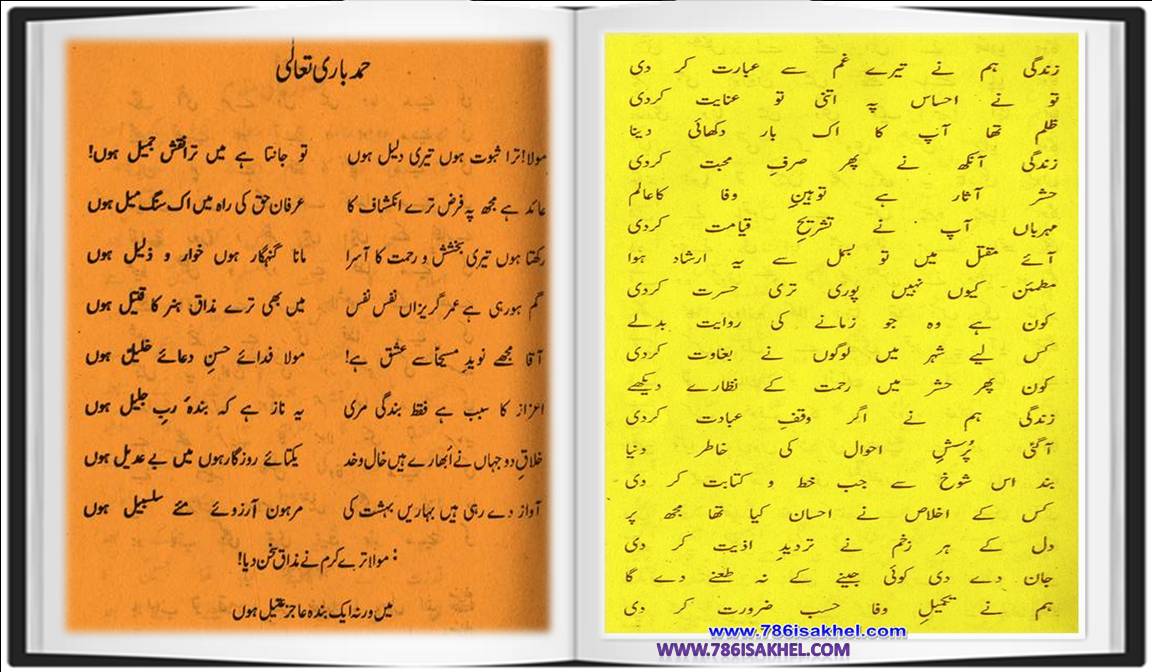 حمد باری تعالٰی
مولا! ترا ثبوت ہوں تیری دلیل ہوں تو جانتا ہے میں ترا نقشِ جمیل ہوں!
عائد ہے مجھ پہ فرض ترے انکشاف کا عرفان حق کی راہ میں اک سنگ میل ہوں
رکھتا ہوں تیری بخشش و رحمت کا آسرا مانا گنہگار ہوں خوار و ذلیل ہوں
گم ہو رہی ہے عمر گریزاں نفس نفس میں بھی ترے مذاق ہنر کا قتیل ہوں
آقا مجھے نویدِ مسیحا سے عشق ہے! مولا فدائے حسنِ دعائے خلیل ہوں
اعزاز کا سبب ہے فقط بندگی مری یہ ناز ہے کہ بندۂ ربِ جلیل ہوں
خلاقِ دو جہاں نے اُبھارے ہیں خال و خد یکتائے روزگار ہوں میں بے عدیل ہوں
آواز دے رہی ہیں بہاریں بہشت کی مرہون آرزوئے مئے سلسبیل ہوں
: مولا ترے کرم نے مذاق سخن دیا!
میں ورنہ ایک بندہ عاجز عقیل ہوں
زندگی ہم نے تیرے غم سے عبارت کر دی
تو نے احساس پہ اتنی تو عنایت کردی
ظلم تھا آپ کا اک بار دکھائی دینا
زندگی آنکھ نے پھر صرفِ محبت کردی
حشر آثار ہے توہینِ وفا کا عالم
مہرباں آپ نے تشریحِ قیامت کردی
آئے مقتل میں تو بسمل سے یہ ارشاد ہوا
مطمئن کیوں نہیں پوری تری حسرت کردی
کون ہے وہ جو زمانے کی روایت بدلے
کس لیے شہر میں لوگوں نے بغاوت کردی
کون پھر حشر میں رحمت کے نظارے دیکھے
زندگی ہم نے اگر وقفِ عبادت کردی
آگئی پُرسشِ احوال کی خاطر دنیا
بند اس شوخ سے جب خط و کتابت کر دی
کس کے اخلاص نے احسان کیا تھا مجھ پر
دل کے ہر زخم نے تردیدِ اذیت کر دی
جان دے دی کوئی جینے کے نہ طعنے دے گا
ہم نے تکمیلِ وفا حسب ضرورت کر دی
www.786isakhel.com
WWW.786ISAKHEL.COM